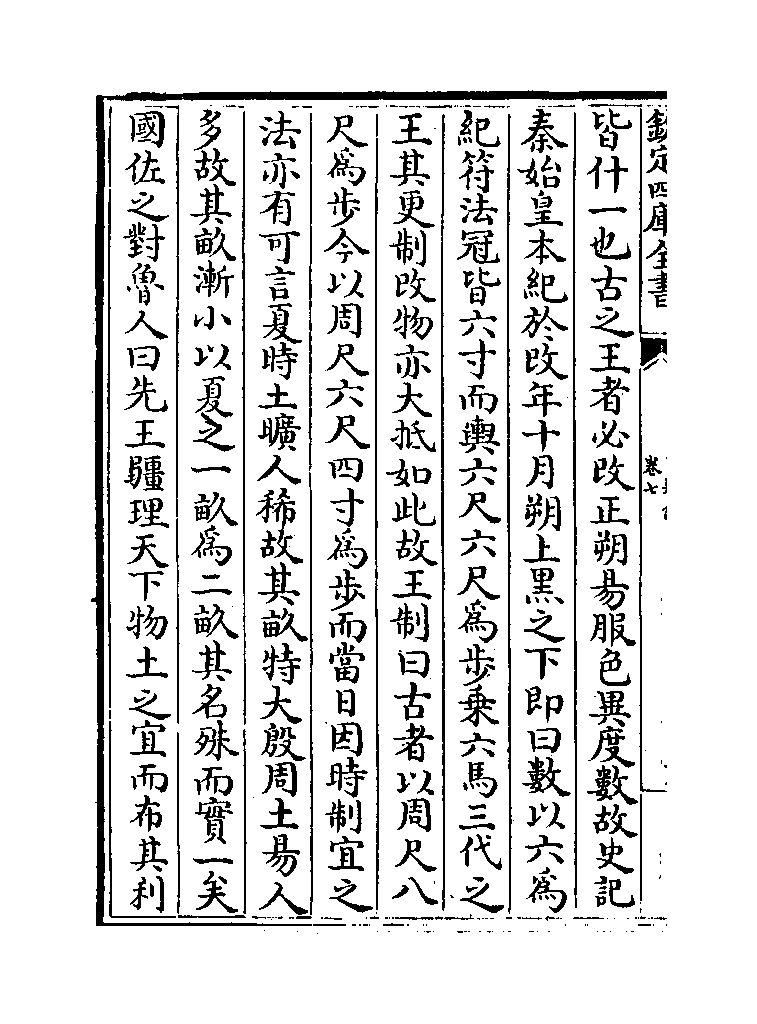 欽定四庫全書
卷七
皆什一也古之王者必改正朔易服色異度數故史記
秦始皇本紀於改年十月朔上黑之下即曰數以六為
紀符法冠皆六寸而輿六尺六尺為步乗六馬三代之
王其更制改物亦大抵如此故王制曰古者以周尺八
尺為步今以周尺六尺四寸為步而當日因時制宜之
法亦有可言夏時土曠人稀故其畝特大殷周土易人
多故其畝漸小以夏之一畝為二畝其名殊而實一矣
國佐之對魯人曰先王疆理天下物土之宜而布其利